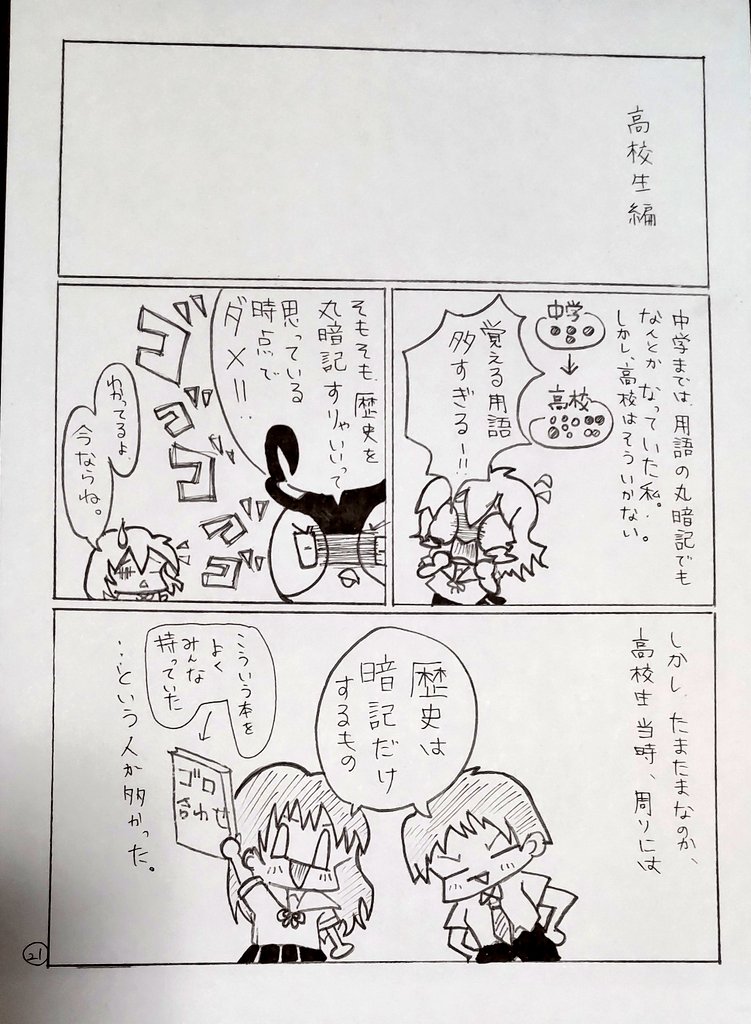 高校生編
中学までは、用語の丸暗記でも
なんとかなっていた私。
しかし、高校はそういかない。
中学
高校
覚える用語
多すぎる!!
そもそも、歴史を
丸暗記すりゃいいって
思っている
時点で
ダメ!!
ゴゴゴゴゴ
わかってるよ、
今ならね。
しかし、たまたまなのか、
高校生当時、周りには
歴史は
暗記だけ
するもの
こういう本を
よく
みんな
持っていた
ゴロ
合わせ
…という人が多かった。
21